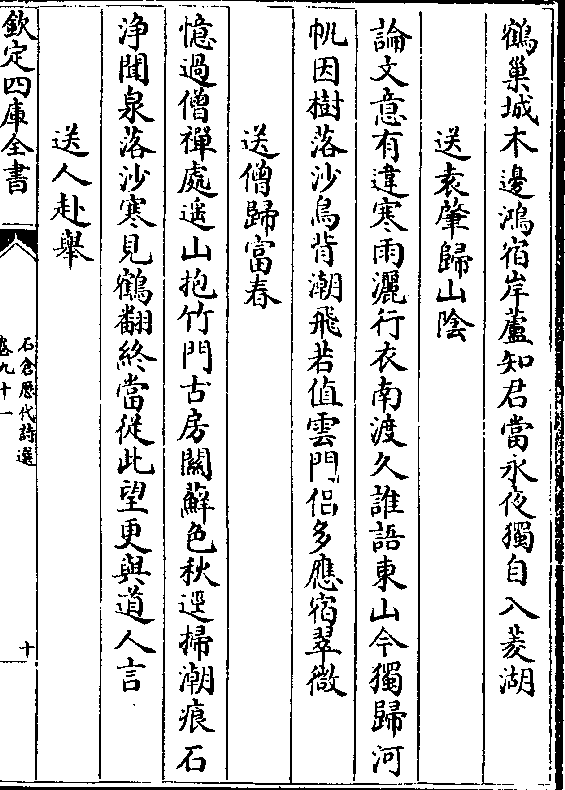 鶴巢城木邊鴻宿岸蘆知君當永夜獨自入菱湖
送袁肇歸山陰
論文意有違寒雨灑行衣南渡久誰語東山今獨歸河
帆因樹落沙鳥背潮飛若值雲門侣多應宿翠微
送僧歸富春
憶過僧禪處遥山抱竹門古房關蘚色秋逕掃潮痕石
浄聞泉落沙寒見鶴翻終當從此望更與道人言
送人赴舉
欽定四庫全書
石倉歷代詩選
卷九十一
十